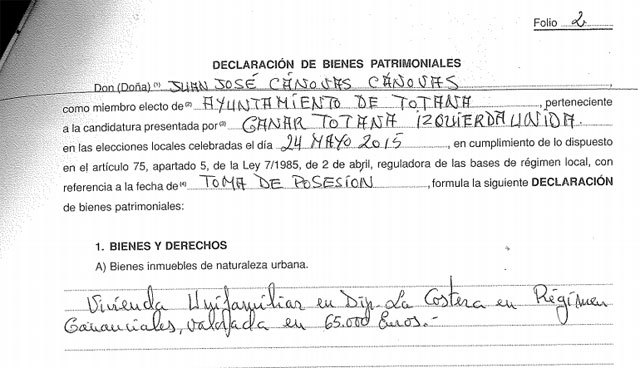 Folio 2
DECLARACIÓN DE BIENES PATRIMONIALES
Don (Doña) (1) JUAN JOSÉ CÁNOVAS CÁNOVAS
como miembro electo de (2) AYUNTAMIENTO DE TOTANA, perteneciente
a la candidatura presentada por (3) GANAR TOTANA IZQUIERDA UNIDA.
en las elecciones locales celebradas el día 24 MAYO 2015, en cumplimiento de lo dispuesto
en el artículo 75, apartado 5, de la Ley 7/1985, de 2 de abril, reguladora de las bases de régimen local, con
referencia a la fecha de (4) TOMA DE POSESION, formula la siguiente DECLARACIÓN
de bienes patrimoniales:
1. BIENES Y DERECHOS
A) Bienes inmuebles de naturaleza urbana.
Vivienda Unifamiliar en Dip. La Costera en Régimen
Gananciales, valorada en 65.000 Euros.-